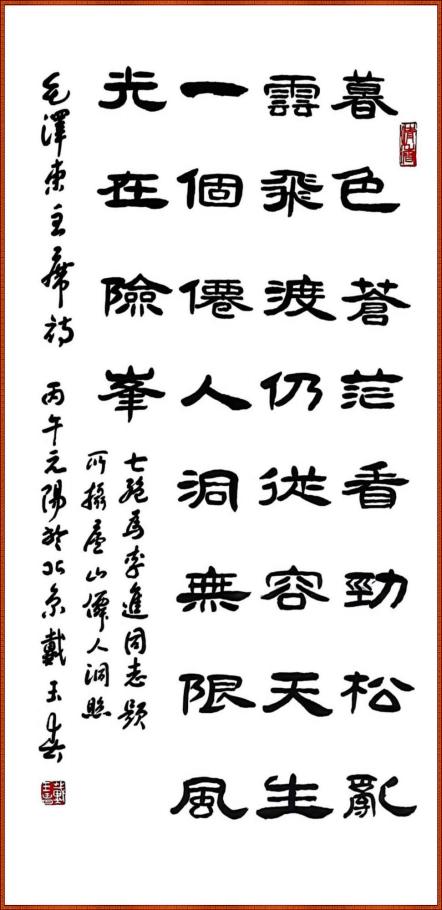 暮色蒼茫看勁松亂
雲飛渡仍從容天生
一個僊人洞無限風
光在險峯
七絕為李進同志題
所攝廬山僊人洞照
毛澤東主席詩 丙午元陽於北京戴玉